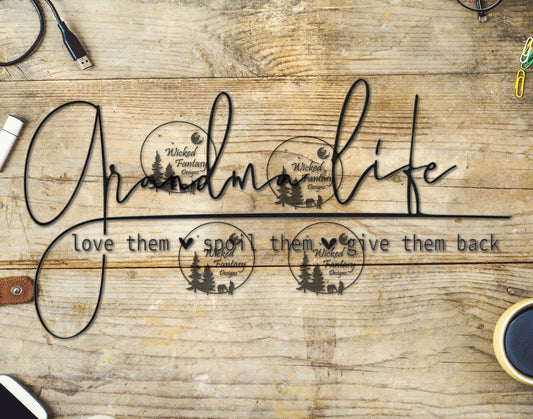 Grandma life
love them ♥ spoil them ♥ give them back
Wicked
Fantasy
Designs
Wicked
Fantasy
Designs
Wicked
Fantasy
Designs
Wicked
Fantasy
Designs